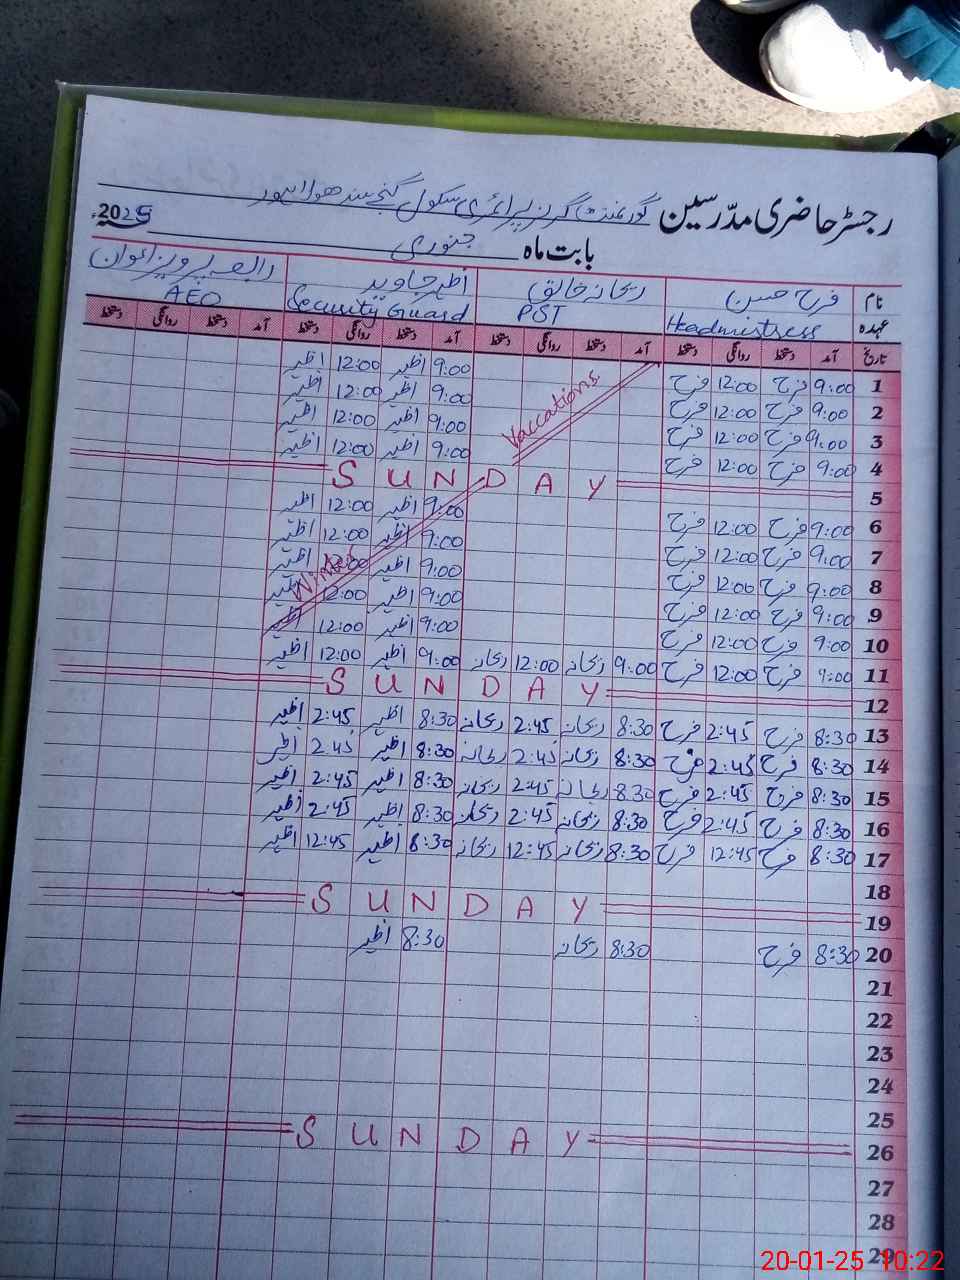 رجسٹر حاضری مدّرسین گورنمنٹ گرلز پرائمری سکول
بابت ماہ جنوری 2025
نام فرح حسن ریحانہ خالق اظہر جاوید رابعہ پرویز اعوان
عہدہ Headmistress PST Security Guard AEO
تاریخ آمد دستخط روانگی دستخط آمد دستخط روانگی دستخط آمد دستخط روانگی دستخط آمد دستخط روانگی دستخط
1 9:00 فرح 12:00 فرح 9:00 اظہر 12:00 اظہر
2 9:00 فرح 12:00 فرح 9:00 اظہر 12:00 اظہر
Vaccations
3 9:00 فرح 12:00 فرح 9:00 اظہر 12:00 اظہر
4 9:00 فرح 12:00 فرح 9:00 اظہر 12:00 اظہر
5 SUNDAY
6 9:00 فرح 12:00 فرح 9:00 اظہر 12:00 اظہر
7 9:00 فرح 12:00 فرح 9:00 اظہر 12:00 اظہر
8 9:00 فرح 12:00 فرح 9:00 اظہر 12:00 اظہر
Winter
9 9:00 فرح 12:00 فرح 9:00 اظہر 12:00 اظہر
10 9:00 فرح 12:00 فرح 9:00 اظہر 12:00 اظہر
11 9:00 فرح 12:00 فرح 9:00 ریحانہ 12:00 ریحانہ 9:00 اظہر 12:00 اظہر
12 SUNDAY
13 8:30 فرح 2:45 فرح 8:30 ریحانہ 2:45 ریحانہ 8:30 اظہر 2:45 اظہر
14 8:30 فرح 2:45 فرح 8:30 ریحانہ 2:45 ریحانہ 8:30 اظہر 2:45 اظہر
15 8:30 فرح 2:45 فرح 8:30 ریحانہ 2:45 ریحانہ 8:30 اظہر 2:45 اظہر
16 8:30 فرح 2:45 فرح 8:30 ریحانہ 2:45 ریحانہ 8:30 اظہر 2:45 اظہر
17 8:30 فرح 12:45 فرح 8:30 ریحانہ 12:45 ریحانہ 8:30 اظہر 12:45 اظہر
18
19 SUNDAY
20 8:30 فرح 8:30 ریحانہ 8:30 اظہر
21
22
23
24
25
26 SUNDAY
27
28
29
20-01-25 10:22